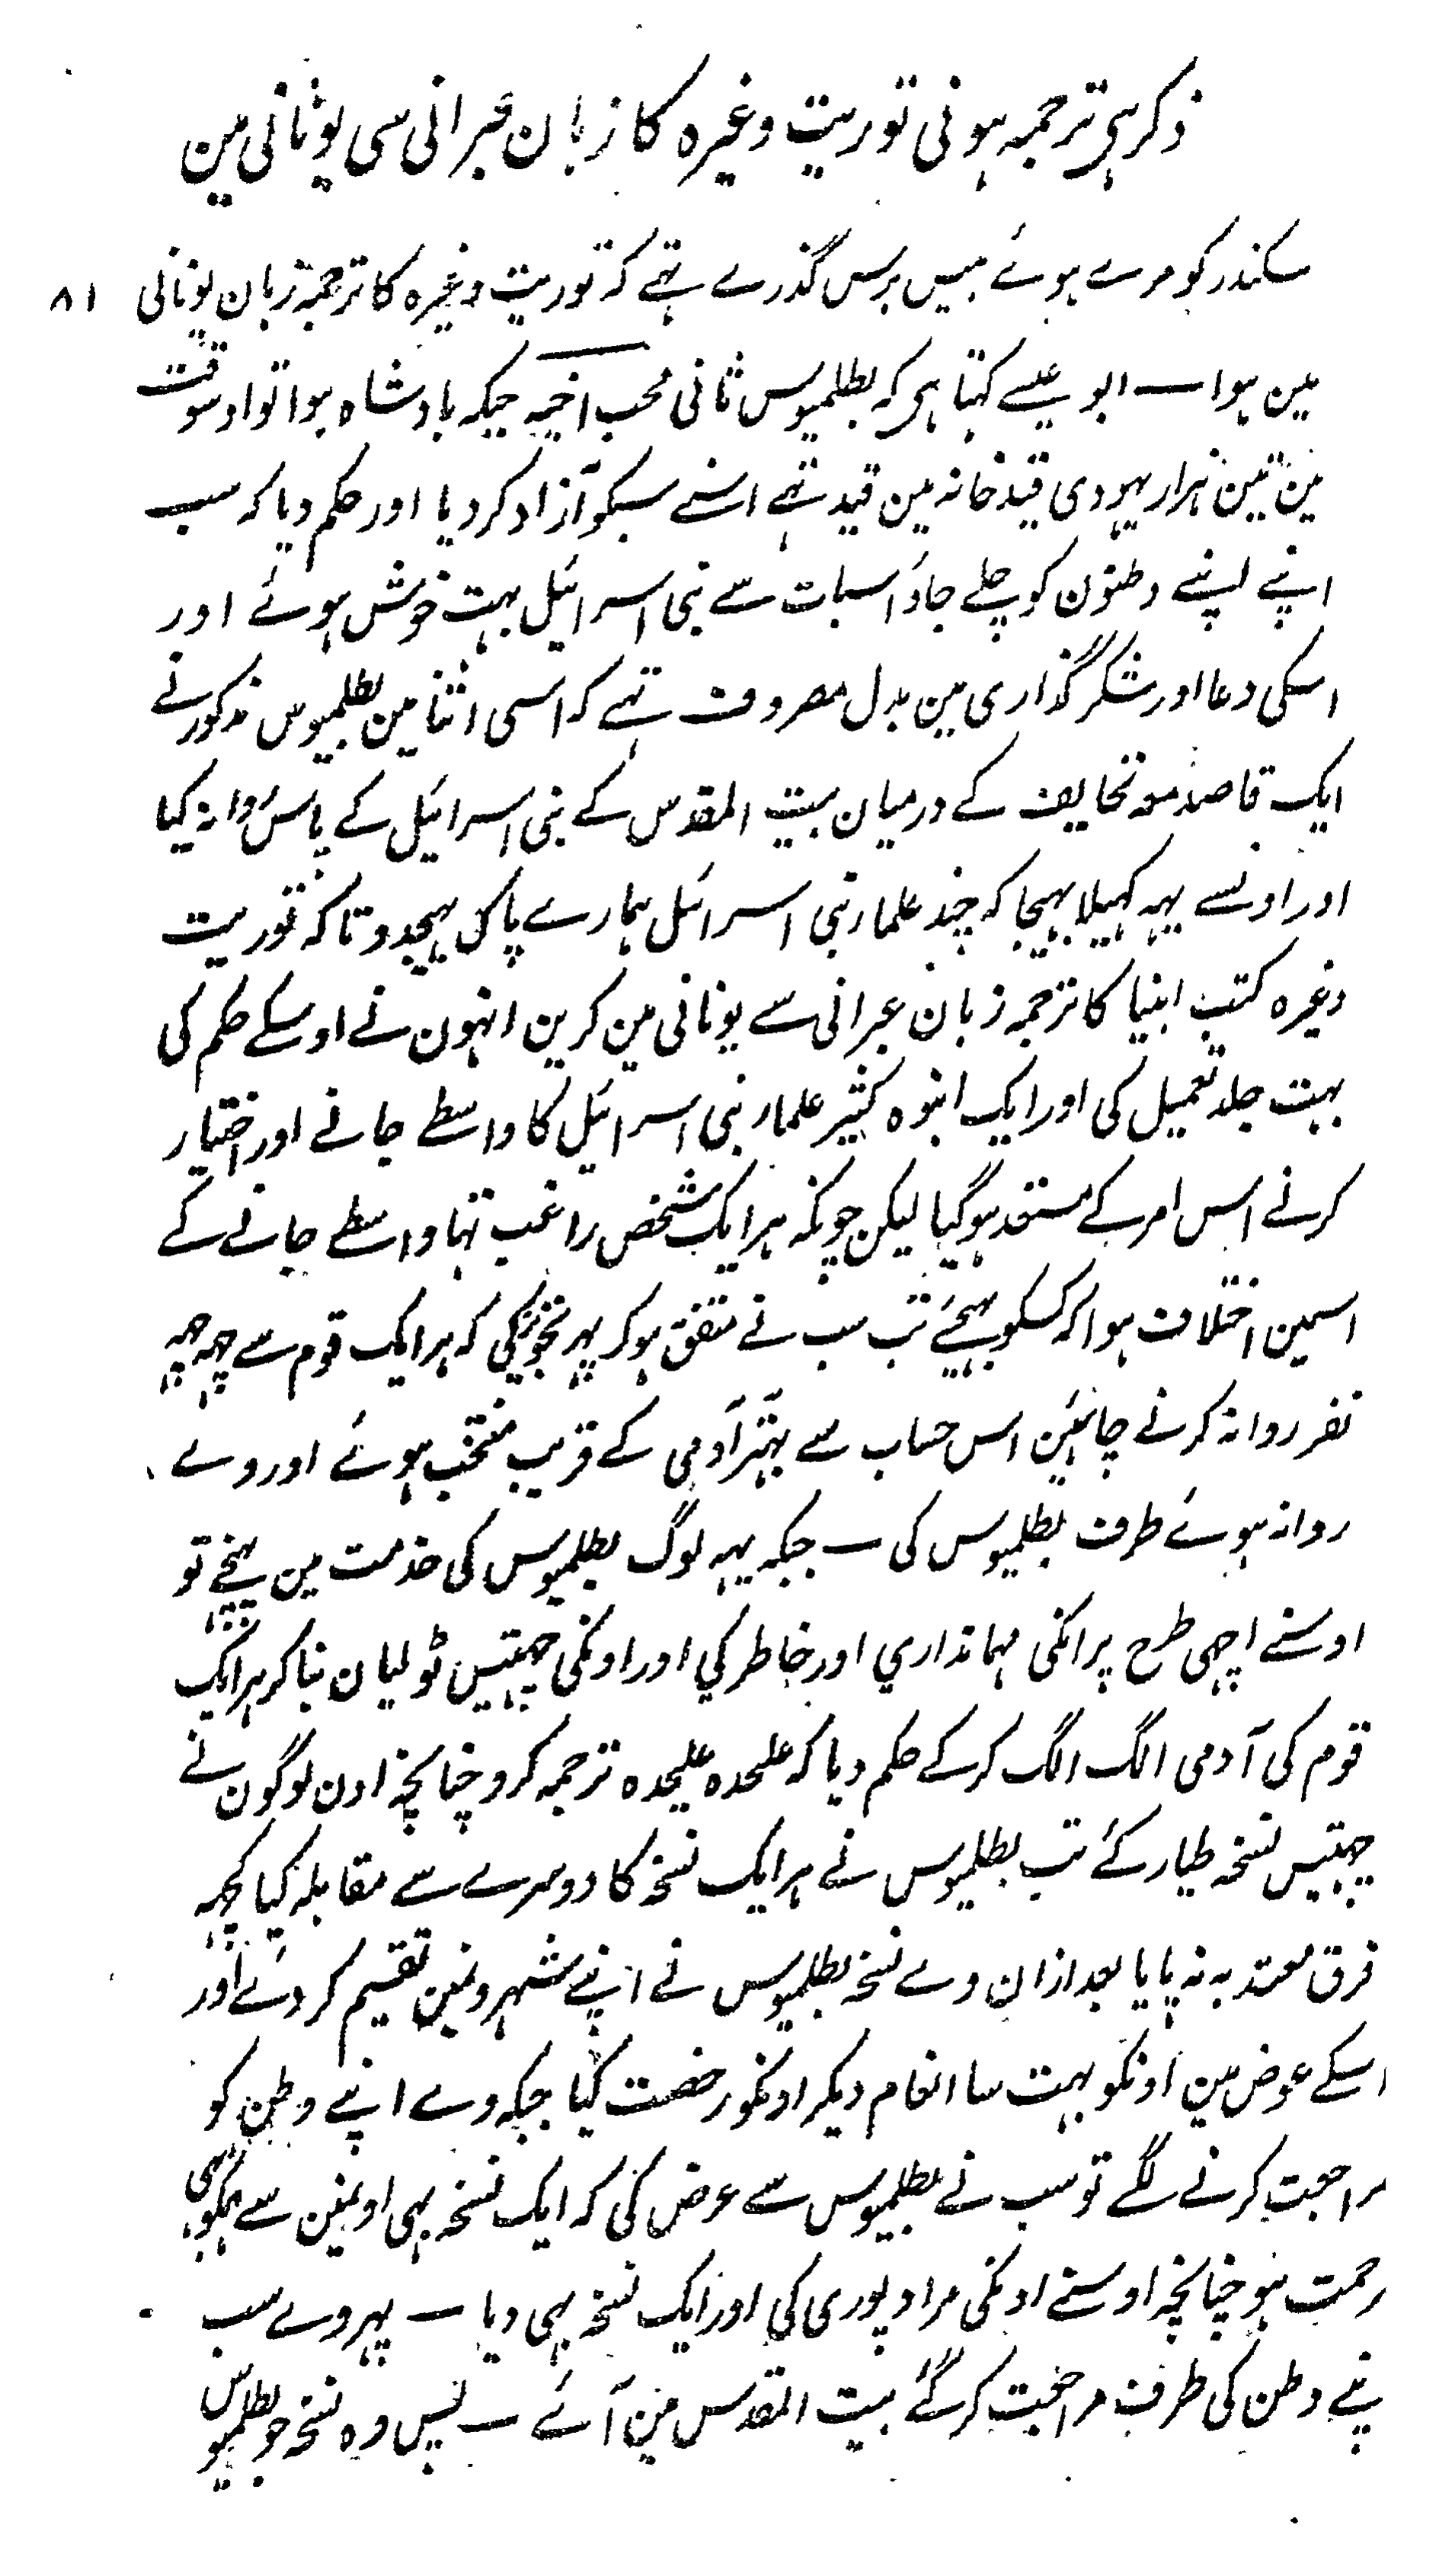 ذکر ہی ترجمہ ہونی توریت وغیرہ کا زبان عبرانی سی یونانی مین
سکندر کو مرے ہوئے بیس برس گذرے تہے کہ توریت وغیرہ کا ترجمہ زبان یونانی ۸۱
مین ہوا ــ ابو عیسے کہتا ہی کہ بطلمیوس ثانی محب اخیہ جبکہ بادشاہ ہوا تو اوسوقت
مین تین ہزار یہودی قید خانہ مین قید تہے اسنے سبکو آزاد کر دیا اور حکم دیا کہ سب
اپنے اپنے وطنون کو چلے جاؤ اسبات سے بنی اسرائیل بہت خوش ہوئے اور
اسکی دعا اور شکر گذاری مین بدل مصروف تہے کہ اسی اثنا مین بطلمیوس مذکور نے
ایک قاصد معہ تحایف کے درمیان بیت المقدس کے بنی اسرائیل کے پاس روانہ کیا
اور اونسے یہہ کہیلا بہیجا کہ چند علماء بنی اسرائل ہمارے پاس بہیجدو تا کہ توریت
وغیرہ کتب انبیا کا ترجمہ زبان عبرانی سے یونانی مین کرین انہون نے اوسکے حکم کی
بہت جلد تعمیل کی اور ایک انبوہ کثیر علماء بنی اسرائیل کا واسطے جانے اور اختیار
کرنے اس امر کے مستعد ہو گیا لیکن چونکہ ہر ایک شخص راغب تہا واسطے جانے کے
اسمین اختلاف ہوا کہ کسکو بہیجئے تب سب نے متفق ہو کر یہہ تجویز کی کہ ہر ایک قوم سے چہہ چہہ
نفر روانہ کرنے چاہئین اس حساب سے بہتر آدمی کے قریب منتخب ہوئے اور وے
روانہ ہوئے طرف بطلمیوس کی ــ جبکہ یہہ لوگ بطلمیوس کی خدمت مین پہنچے تو
اوسنے اچہی طرح پر انکی مہمانداری اور خاطر کی اور اونکی چہتیس ٹولیان بنا کر ہر ایک
قوم کی آدمی الگ الگ کر کے حکم دیا کہ علحدہ علیحدہ ترجمہ کرو چنانچہ اون لوگون نے
چہتیس نسخہ طیار کئے تب بطلمیوس نے ہر ایک نسخہ کا دوسرے سے مقابلہ کیا کچہہ
فرق معتد بہ نہ پایا بعد ازان وے نسخہ بطلمیوس نے اپنے شہرونمین تقسیم کر دئے اور
اسکے عوض مین اونکو بہت سا انعام دیکر اونکو رخصت کیا جبکہ وے اپنے وطن کو
مراجعت کرنے لگے تو سب نے بطلمیوس سے عرض کی کہ ایک نسخہ بہی اونمین سے ہمکو بہی
رحمت ہو چنانچہ اوسنے اونکی مراد پوری کی اور ایک نسخہ بہی دیا ــ پہر وے سب
پنے وطن کی طرف مراجعت کر گئے بیت المقدس مین آئے ــ پس وہ نسخہ جو بطلمیوس